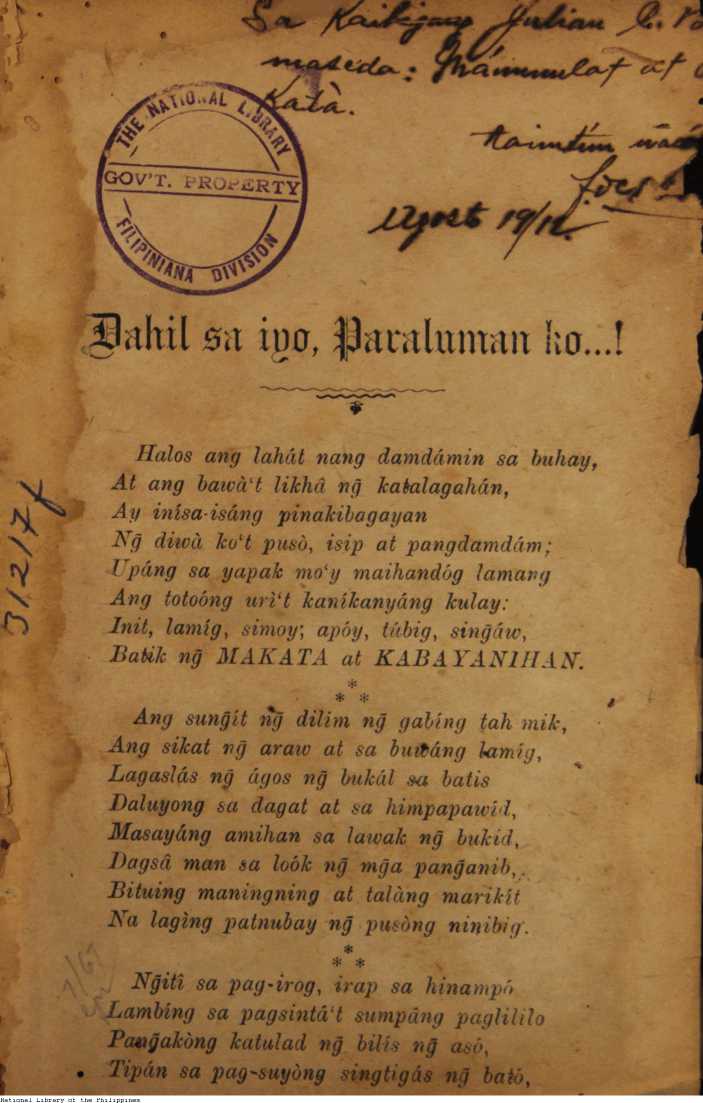 Sa Kaibigang Julian C. 
maseda: Mámmulat at
Katà.
taimtim
Agost 19/12.
THE NATIONAL LIBRARY
GOV'T. PROPERTY
FILIPINIANA DIVISION
Dahil sa iyo, Paraluman ko...!
31217f
Halos ang lahát nang damdámin sa buhay,
At ang bawà‘t likhâ ng̃ katalagahán,
Ay inísa-isáng pinakibagayan
Ng̃ diwà ko‘t pusò, isip at pangdamdám;
Upáng sa yapak mo‘y maihandóg lamang
Ang totoóng urì‘t kaníkanyáng kulay:
Init, lamíg, simoy; apóy, túbig, sing̃áw,
Batik ng̃ MAKATA at KABAYANIHAN.
*
* *
Ang sung̃ít ng̃ dilim ng̃ gabíng tah mik,
Ang sikat ng̃ araw at sa buwáng lamíg,
Lagaslás ng̃ ágos ng̃ bukál sa batis
Daluyong sa dagat at sa himpapawíd,
Masayáng amihan sa lawak ng̃ bukid,
Dagsâ man sa loók ng̃ mg̃a pang̃anib,
Bituing maningning at talàng marikít
Na lagìng patnubay ng̃ pusòng ninibig.
*
* *
Ng̃itî sa pag-irog, irap sa hinampó
Lambíng sa pagsintá‘t sumpáng paglililo
Pang̃akòng katulad ng̃ bilís ng̃ asó,
Tipán sa pag-suyòng singtigás ng̃ bató,
National Library of the Philippines